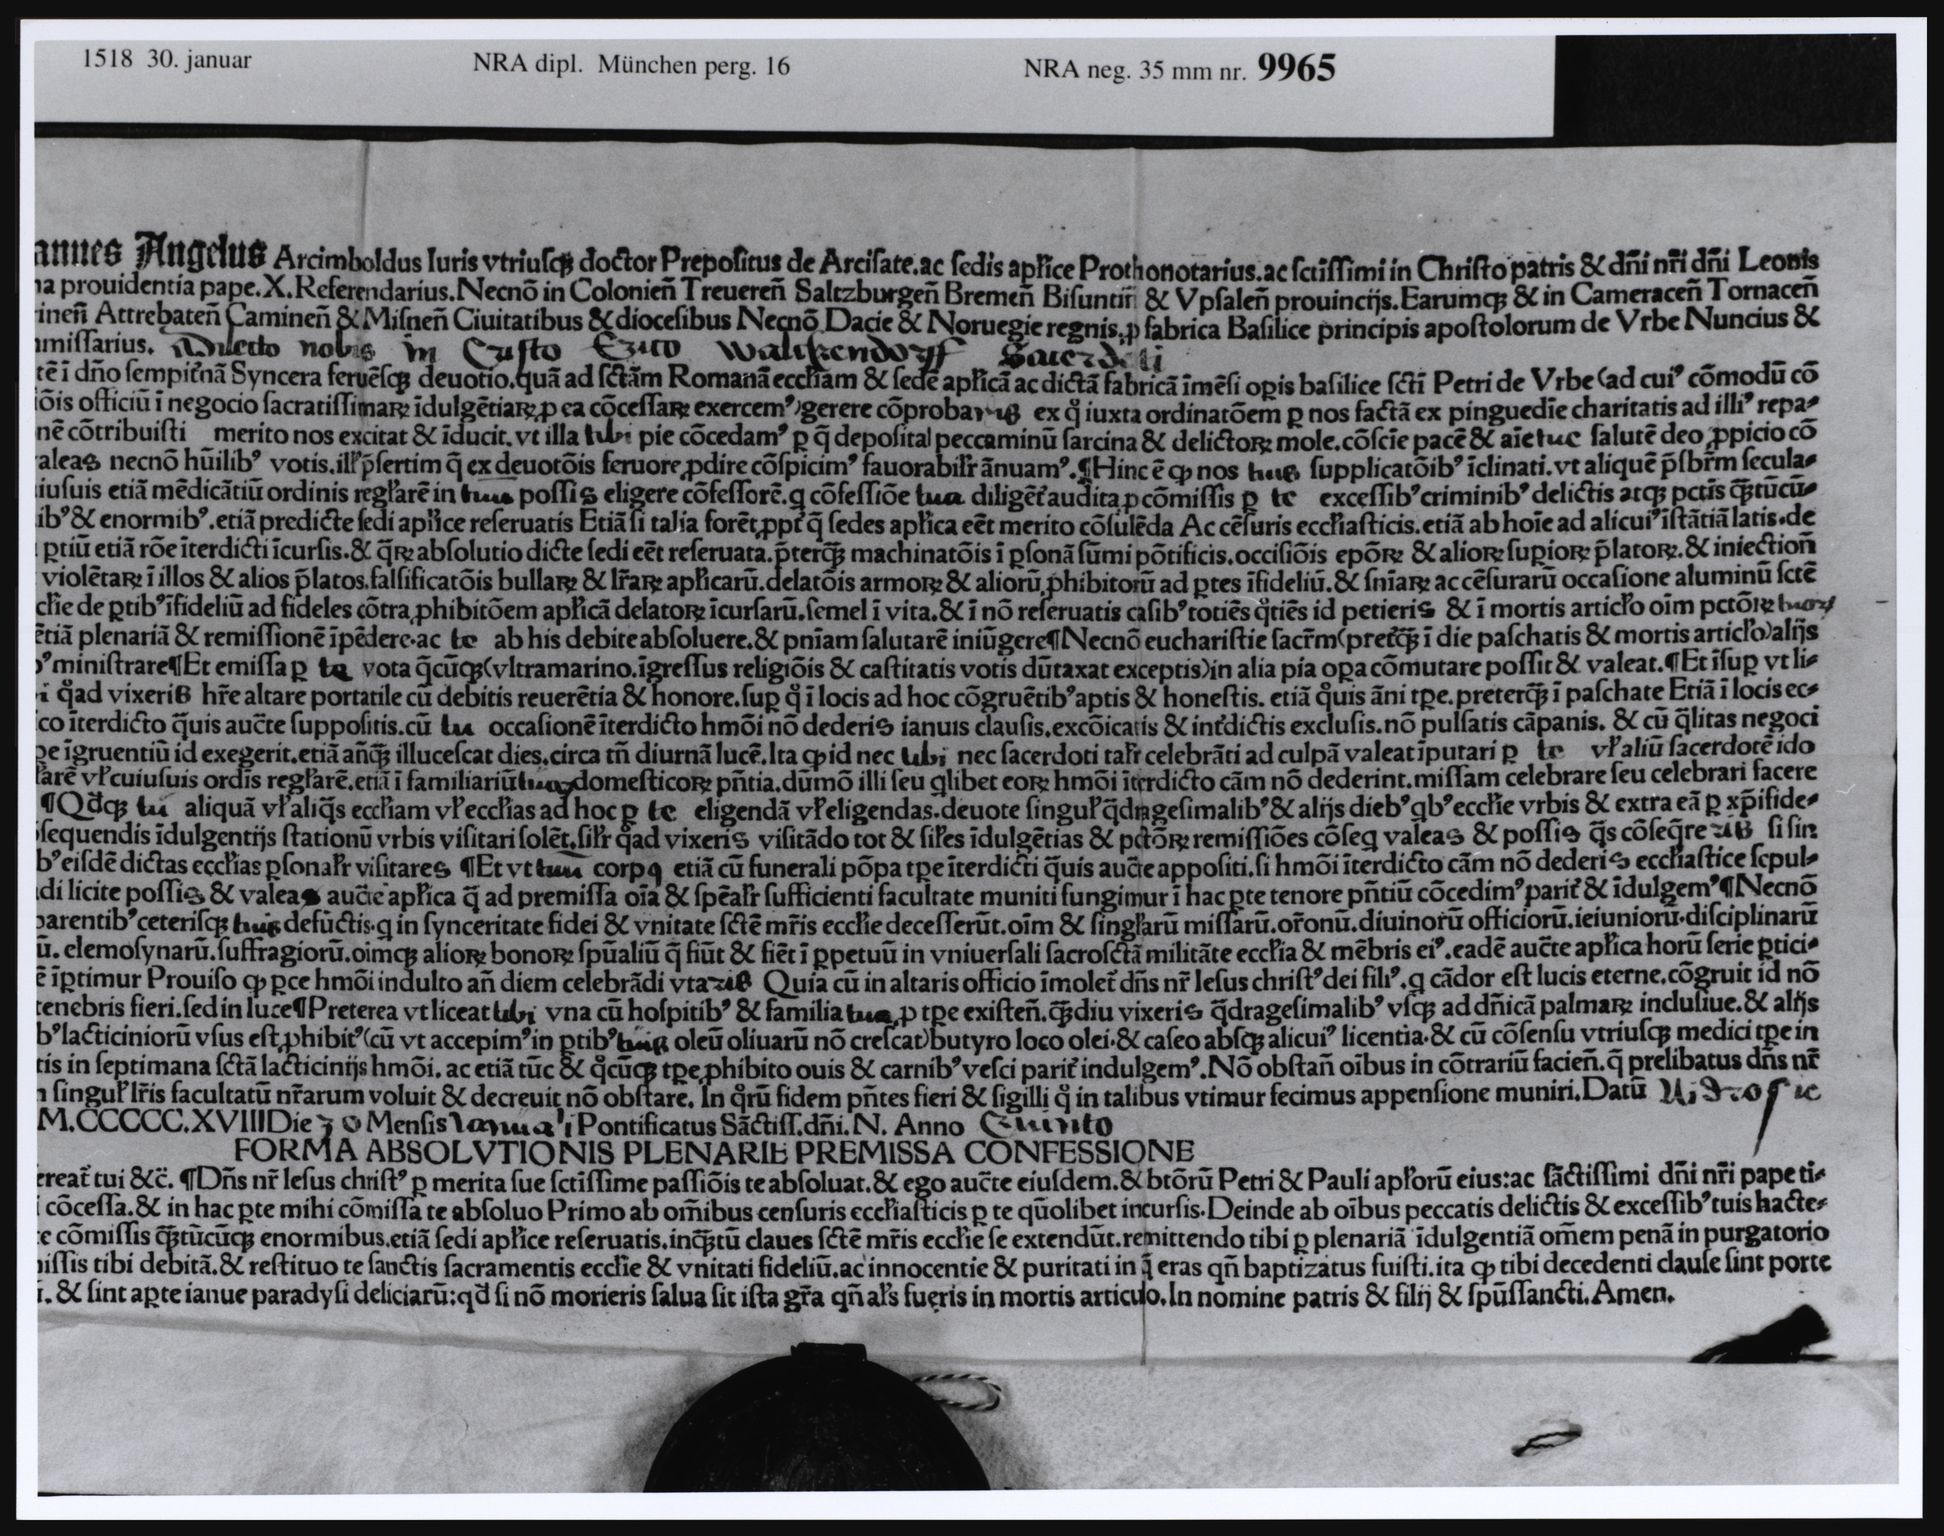 1518 30. januar NRA dipl. München perg. 16 NRA neg. 35 mm nr. 9965
annes Angelus Arcimboldus Iuris vtriuſqꝫ doctor Prepoſitus de Arciſate.ac ſedis apl'ice Prothonotarius.ac ſctiſſimi in Chriſto patris & dñi nr̄i dñi Leonis
na prouidentia pape.X.Referendarius.Necnō in Colonieñ Treuereñ Saltzburgeñ Bremeñ Biſuntiñ & Vpſaleñ prouincijs.Earumqꝫ & in Cameraceñ Tornaceñ
rineñ Attrebateñ Camineñ & Miſneñ Ciuitatibus & dioceſibus Necnō Dacie & Noruegie regnis.ꝓ fabrica Baſilice principis apoſtolorum de Vrbe Nuncius &
mmiſſarius. Dilecto nobis in Cristo Erico Walkendorff Sacerdoti
tē ī dño ſempit'nā Syncera feruēſqꝫ deuotio.quā ad ſctām Romanā eccl'iam & ſedē apl'icā ac dictā fabricā īmēſi oꝑis baſilice ſcti Petri de Vrbe (ad cui' cōmodū cō
iōis officiū ī negocio ſacratiſſimaꝝ īdulgētiaꝝ ꝓ ea cōceſſaꝝ exercem') gerere cōprobaris ex q° iuxta ordinatōem ꝑ nos factā ex pinguedīe charitatis ad illi' repa-
nē cōtribuiſti merito nos excitat & īducit.vt illa tibi pie cōcedam' ꝑ q̄ depoſita peccaminū ſarcina & delictoꝝ mole.cōſcīe pacē & aīe tue ſalutē deo ꝓpicio cō
aleas necnō hūilib' votis.ill' p̄ſertim q̄ ex deuotōis feruore ꝓdire cōſpicim' fauorabil'r ānuam'.¶Hinc ē ꝙ nos tuis ſupplicatōib' īclinati.vt aliquē p̄ſbr̄m ſecula-
iuſuis etiā mēdicātiū ordinis regl'arē in tuum poſſis eligere cōfeſſorē.q cōfeſſiōe tua diligēt' audita ꝓ cōmiſſis ꝑ te exceſſib' criminib' delictis atqꝫ pctis q̄tūcū-
ib' & enormib'.etiā predicte ſedi apl'ice reſeruatis Etiā ſi talia forēt ꝓpt' q̄ ſedes apl'ica eēt merito cōſulēda Ac cēſuris eccl'iaſticis.etiā ab hoīe ad alicui' īſtātiā latis.de
ꝑtiū etiā rōe īterdicti īcurſis.& q̄ꝝ abſolutio dicte ſedi eēt reſeruata.p̄terq̄ꝫ machinatōis ī ꝑſonā ſūmi pōtificis.occiſiōis epōꝝ & alioꝝ ſupioꝝ p̄latoꝝ.& iniectioñ
violētaꝝ ī illos & alios p̄latos.falſificatōis bullaꝝ & lr̄aꝝ apl'icarū.delatōis armoꝝ & aliorū ꝓhibitorū ad ꝑtes īfideliū.& ſnīaꝝ ac cēſurarū occaſione aluminū ſctē
cl'ie de ꝑtib' īfideliū ad fideles cōtra ꝓhibitōem apl'icā delatoꝝ īcurſarū.ſemel ī vita.& ī nō reſeruatis caſib' totiēs q°tiēs id petieris & ī mortis articl'o oīm pctōꝝ tuoꝝ
ētiā plenariā & remiſſionē īpēdere.ac te ab his debite abſoluere.& pnīam ſalutarē iniūgere¶Necnō euchariſtie ſacr̄m (pret'q̄ꝫ ī die paſchatis & mortis articl'o) alijs
b' miniſtrare¶Et emiſſa ꝑ te vota q̄cūqꝫ (vltramarino.īgreſſus religiōis & caſtitatis votis dūtaxat exceptis) in alia pia oꝑa cōmutare poſſit & valeat.¶Et īſuꝑ vt li-
i q°ad vixeris hr̄e altare portatile cū debitis reuerētia & honore.ſuꝑ q° ī locis ad hoc cōgruētib' aptis & honeſtis. etiā q°uis āni tꝑe.preterq̄ꝫ ī paſchate Etiā ī locis ec-
co īterdicto q̄uis auct̄e ſuppoſitis.cū tu occaſionē īterdicto hmōi nō dederis ianuis clauſis.excōicatis & int'dictis excluſis.nō pulſatis cāpanis. & cū q̄litas negoci
ꝑe īgruentiū id exegerit.etiā añq̄ꝫ illuceſcat dies.circa tñ diurnā lucē.Ita ꝙ id nec tibi nec ſacerdoti tal'r celebrāti ad culpā valeat īputari ꝑ te vl' aliū ſacerdotē ido
l'arē vl' cuiuſuis ordīs regl'arē.etiā ī familiariū tuoꝝ domeſticoꝝ pñtia.dūmō illi ſeu q̄libet eoꝝ hmōi īterdicto cām nō dederint.miſſam celebrare ſeu celebrari facere
¶Qđqꝫ tu aliquā vl' aliq̄s eccl'iam vl' eccl'ias ad hoc ꝑ te eligendā vl' eligendas.deuote ſingul' q̄dragesimalib' & alijs dieb' qb' eccl'ie vrbis & extra eā ꝑ xp̄ifide-
ōſequendis īdulgentijs ſtationū vrbis viſitari ſolēt.ſil'r q°ad vixeris viſitādo tot & ſil'es īdulgētias & pctōꝝ remiſſiōes cōſeq valeas & poſſis q̄s cōſeq̄reris ſi ſin
b' eiſdē dictas eccl'ias ꝑſonal'r viſitares ¶Et vt tuū corpꝯ etiā cū funerali pōpa tꝑe īterdicti q̄uis auct̄e appoſiti.ſi hmōi īterdicto cām nō dederis eccl'iaſtice ſepul-
di licite poſſis & valeas auct̄e apl'ica q̄ ad premiſſa oīa & ſpēal'r ſufficienti facultate muniti fungimur ī hac ꝑte tenore pñtiū cōcedim' parit' & īdulgem'¶Necnō
parentib' ceteriſqꝫ tuis defūctis.q in ſynceritate fidei & vnitate ſctē mr̄is eccl'ie deceſſerūt.oīm & ſingl'arū miſſarū.or̄onū.diuinorū officiorū.ieiuniorū.diſciplinarū
ū. elemoſynarū.ſuffragiorū.oīmqꝫ alioꝝ bonoꝝ ſpūaliū q̄ fiūt & fiēt ī ꝑpetuū in vniuerſali ſacroſctā militāte eccl'ia & mēbris ei'.eadē auct̄e apl'ica horū ſerie ꝑtici-
ē īꝑtimur Prouiſo ꝙ ꝑce hmōi indulto añ diem celebrādi vtaris Quia cū in altaris officio īmolet' dñs nr̄ Ieſus chriſt' dei fili'.q cādor eſt lucis eterne.cōgruit id nō
tenebris fieri.ſed in luce¶Preterea vt liceat tibi vna cū hoſpitib' & familia tua ꝓ tꝑe exiſteñ.q̄ꝫdiu vixeris q̄drageſimalib' vſqꝫ ad dñicā palmaꝝ incluſiue.& alijs
b' lacticiniorū vſus eſt ꝓhibit' (cū vt accepim' in ꝑtib' tuis oleū oliuarū nō creſcat) butyro loco olei.& caſeo abſqꝫ alicui' licentia.& cū cōſenſu vtriuſqꝫ medici tꝑe in
tis in ſeptimana ſctā lacticinijs hmōi. ac etiā tūc & q°cūqꝫ tꝑe ꝓhibito ouis & carnib' veſci parit' indulgem'.Nō obſtañ oībus in cōtrariū facieñ.q̄ prelibatus dñs nr̄
ſingul' lr̄is facultatū nr̄arum voluit & decreuit nō obſtare. In q°rū fidem pñtes fieri & ſigilli q° in talibus vtimur fecimus appenſione muniri.Datū Nidrosie
M.CCCCC.XVIII Die 30 Menſis Ianuarii Pontificatus Sāctiſſ.dñi.N. Anno Quinto
FORMA ABSOLVTIONIS PLENARIE PREMISSA CONFESSIONE
ereat' tui &c̄. ¶Dñs nr̄ Ieſus chriſt' ꝑ merita ſue ſctiſſime paſſiōis te abſoluat.& ego auct̄e eiuſdem.& btōrū Petri & Pauli apl'orū eius:ac ſāctiſſimi dñi nr̄i pape ti-
i cōceſſa.& in hac ꝑte mihi cōmiſſa te abſoluo Primo ab om̄ibus cenſuris eccl'iaſticis ꝑ te qūolibet incurſis.Deinde ab oībus peccatis delictis & exceſſib' tuis hacte-
te cōmiſſis q̄ꝫtūcūqꝫ enormibus.etiā ſedi apl'ice reſeruatis.inq̄ꝫtū claues ſctē mr̄is eccl'ie ſe extendūt.remittendo tibi ꝑ plenariā īdulgentiā om̄em penā in purgatorio
miſſis tibi debitā.& reſtituo te ſanctis ſacramentis eccl'ie & vnitati fideliū.ac innocentie & puritati in q̄ eras qñ baptizatus fuiſti.ita ꝙ tibi decedenti clauſe ſint porte
& ſint aꝑte ianue paradyſi deliciarū:qđ ſi nō morieris ſalua ſit iſta gr̄a qñ al's fueris in mortis articulo.In nomine patris & filij & ſpūſſancti.Amen.